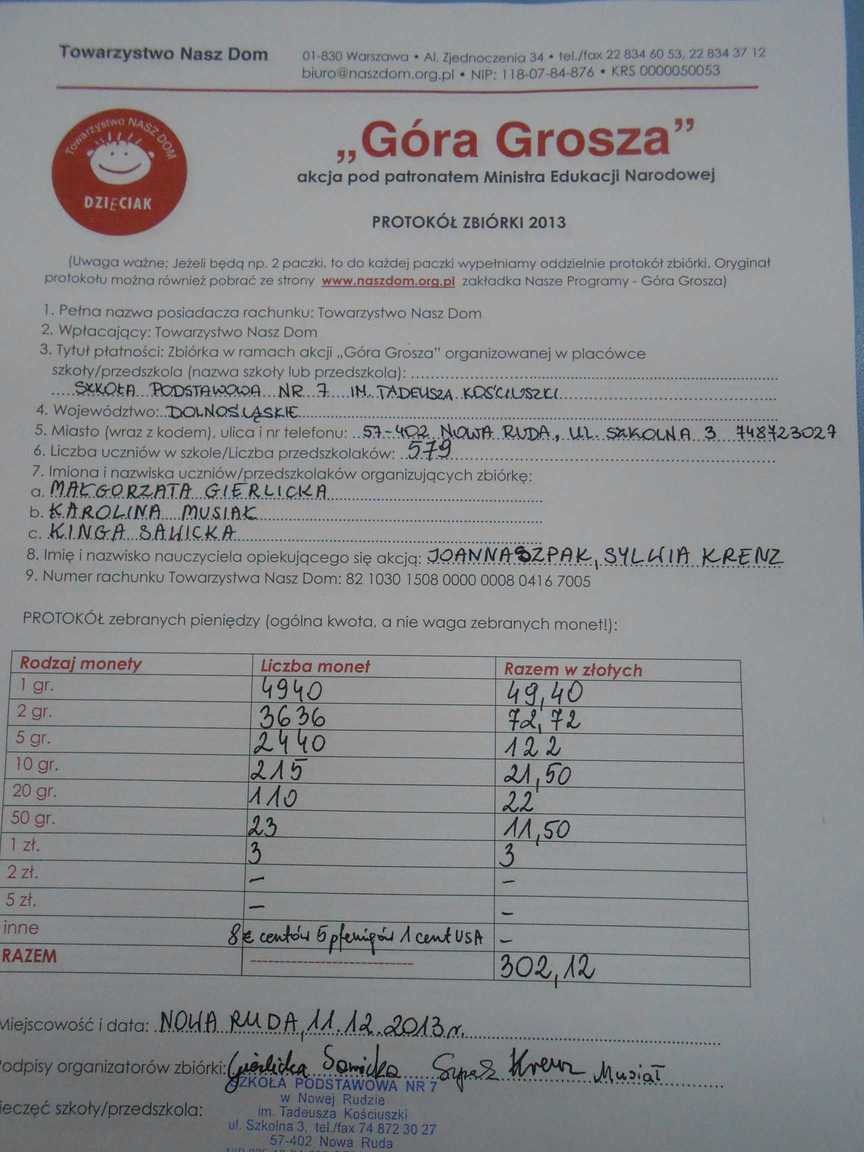 Towarzystwo Nasz Dom
01-830 Warszawa • Al. Zjednoczenia 34 • tel./fax 22 834 60 53, 22 834 37 12
biuro@naszdom.org.pl • NIP: 118-07-84-876 • KRS 0000050053
Towarzystwo NASZ DOM
DZIĘCIAK
„Góra Grosza”
akcja pod patronatem Ministra Edukacji Narodowej
PROTOKÓŁ ZBIÓRKI 2013
(Uwaga ważne: Jeżeli będą np. 2 paczki, to do każdej paczki wypełniamy oddzielnie protokół zbiórki. Oryginał
protokołu można również pobrać ze strony www.naszdom.org.pl zakładka Nasze Programy - Góra Grosza)
1. Pełna nazwa posiadacza rachunku: Towarzystwo Nasz Dom
2. Wpłacający: Towarzystwo Nasz Dom
3. Tytuł płatności: Zbiórka w ramach akcji „Góra Grosza” organizowanej w placówce
szkoły/przedszkola (nazwa szkoły lub przedszkola):
SZKOŁA PODSTAWOWA NR 7 IM. TADEUSZA KOŚCIUSZKI
4. Województwo: DOLNOŚLĄSKIE
5. Miasto (wraz z kodem), ulica i nr telefonu: 57-402 NOWA RUDA, UL. SZKOLNA 3 748723027
6. Liczba uczniów w szkole/Liczba przedszkolaków: 579
7. Imiona i nazwiska uczniów/przedszkolaków organizujących zbiórkę:
a. MAŁGORZATA GIERLICKA
b. KAROLINA MUSIAŁ
c. KINGA SAWICKA
8. Imię i nazwisko nauczyciela opiekującego się akcją: JOANNA SZPAK, SYLWIA KRENZ
9. Numer rachunku Towarzystwa Nasz Dom: 82 1030 1508 0000 0008 0416 7005
PROTOKÓŁ zebranych pieniędzy (ogólna kwota, a nie waga zebranych monet!):
Rodzaj monety Liczba monet Razem w złotych
1 gr. 4940 49,40
2 gr. 3636 72,72
5 gr. 2440 122
10 gr. 215 21,50
20 gr. 110 22
50 gr. 23 11,50
1 zł. 3 3
2 zł. – –
5 zł. – –
inne 8 € centów 5 pfenigów 1 cent USA –
RAZEM 302,12
Miejscowość i data: NOWA RUDA, 11.12.2013 r.
Podpisy organizatorów zbiórki: Gierlicka Sawicka Szpak Krenz Musiał
SZKOŁA PODSTAWOWA NR 7
w Nowej Rudzie
ieczęć szkoły/przedszkola:
im. Tadeusza Kościuszki
ul. Szkolna 3, tel./fax 74 872 30 27
57-402 Nowa Ruda